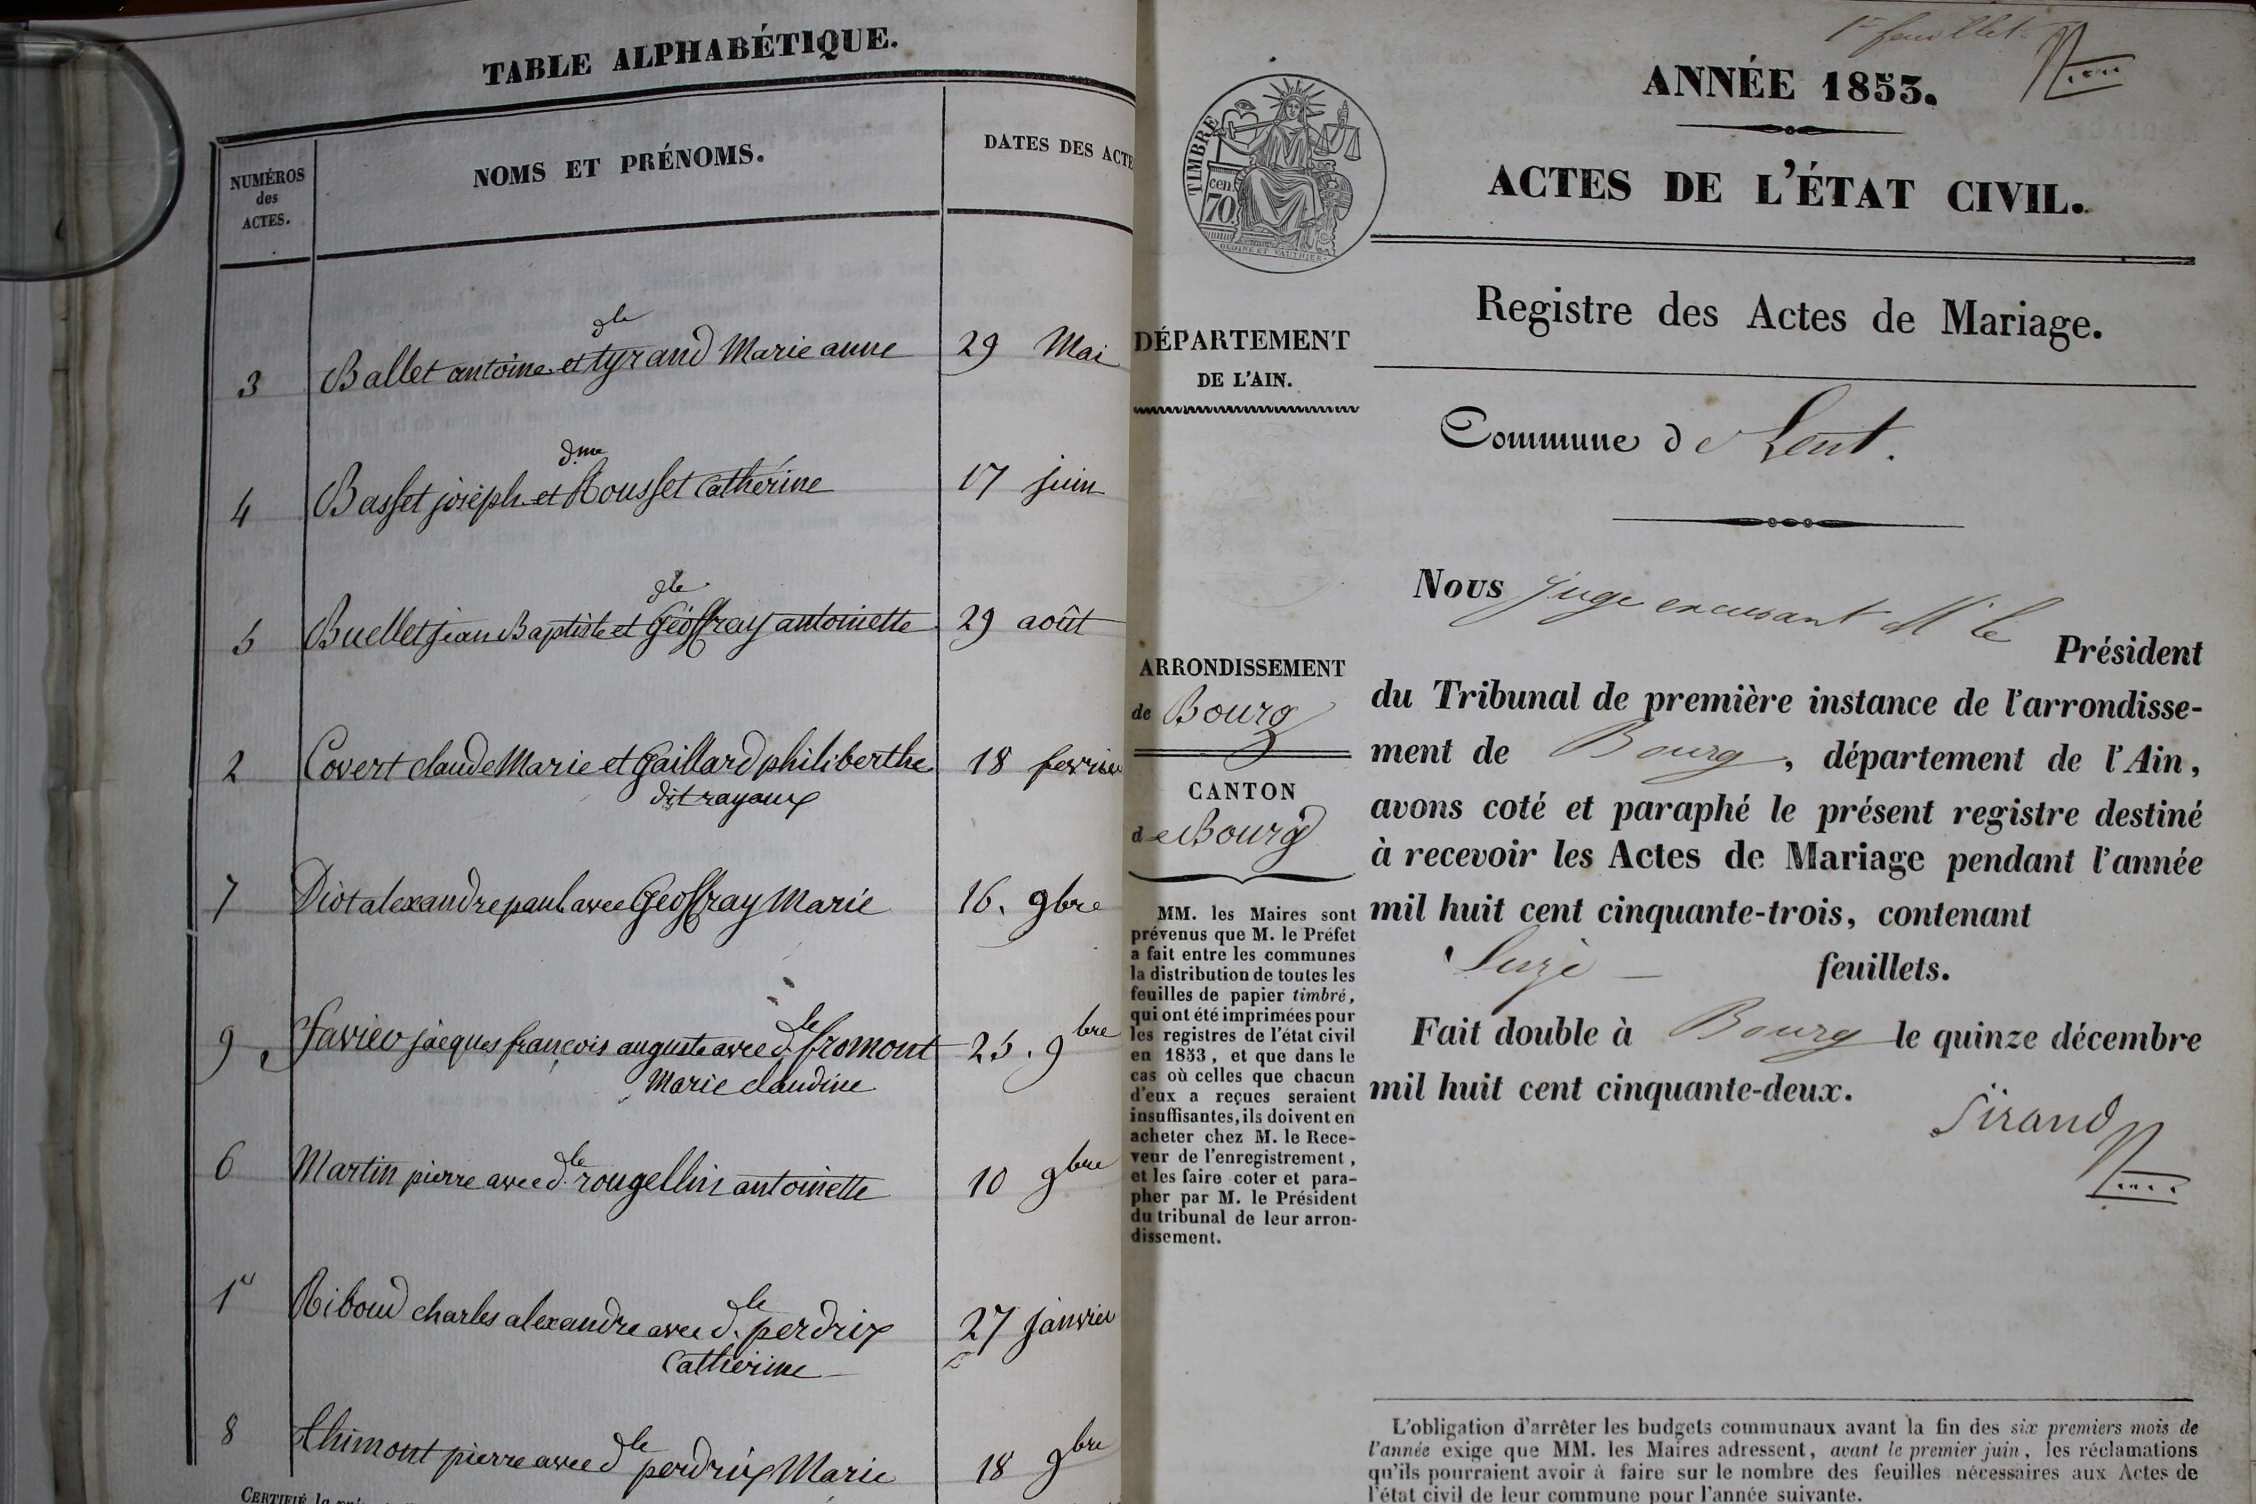 TABLE ALPHABÉTIQUE.
NUMÉROS
des
ACTES.
NOMS ET PRÉNOMS.
DATES DES ACTE
dle
3 Ballet antoine et tyrand Marie anne 29 Mai
dme
4 Basset joséph et Rousset Cathérine 17 juin
dle
5 Buellet jean Baptiste et Géoffray antoinette 29 août
2 Covert claude Marie et Gaillard philiberthe 18 fevrier
dit rayoux
7 Diot alexandre paul avec Geoffray Marie 16. 9bre
9 Favier jacques françois auguste avec dle fromont 25. 9bre
Marie claudine
6 Martin pierre avec dle rougellin antoinette 10 9bre
1er Riboud charles alexandre avec dle perdrix 27 janvier
Catherine
8 thimont pierre avec dle perdrix Marie 18 9bre
CERTIFIÉ
1er feuillet
ANNÉE 1853.
TIMBRE
cen.
70
ACTES DE L'ÉTAT CIVIL.
Registre des Actes de Mariage.
DÉPARTEMENT
DE L'AIN.
Commune de Lent.
ARRONDISSEMENT
de Bourg
CANTON
de Bourg
MM. les Maires sont
prévenus que M. le Préfet
a fait entre les communes
la distribution de toutes les
feuilles de papier timbré,
qui ont été imprimées pour
les registres de l'état civil
en 1853, et que dans le
cas où celles que chacun
d'eux a reçues seraient
insuffisantes, ils doivent en
acheter chez M. le Rece-
veur de l'enregistrement,
et les faire coter et para-
pher par M. le Président
du tribunal de leur arron-
dissement.
Nous juge excusant Mr le Président
du Tribunal de première instance de l'arrondisse-
ment de Bourg, département de l'Ain,
avons coté et paraphé le présent registre destiné
à recevoir les Actes de Mariage pendant l'année
mil huit cent cinquante-trois, contenant
feuillets.
Fait double à Bourg le quinze décembre
mil huit cent cinquante-deux.
Sirand
L'obligation d'arrêter les budgets communaux avant la fin des six premiers mois de
l'année exige que MM. les Maires adressent, avant le premier juin, les réclamations
qu'ils pourraient avoir à faire sur le nombre des feuilles nécessaires aux Actes de
l'état civil de leur commune pour l'année suivante.